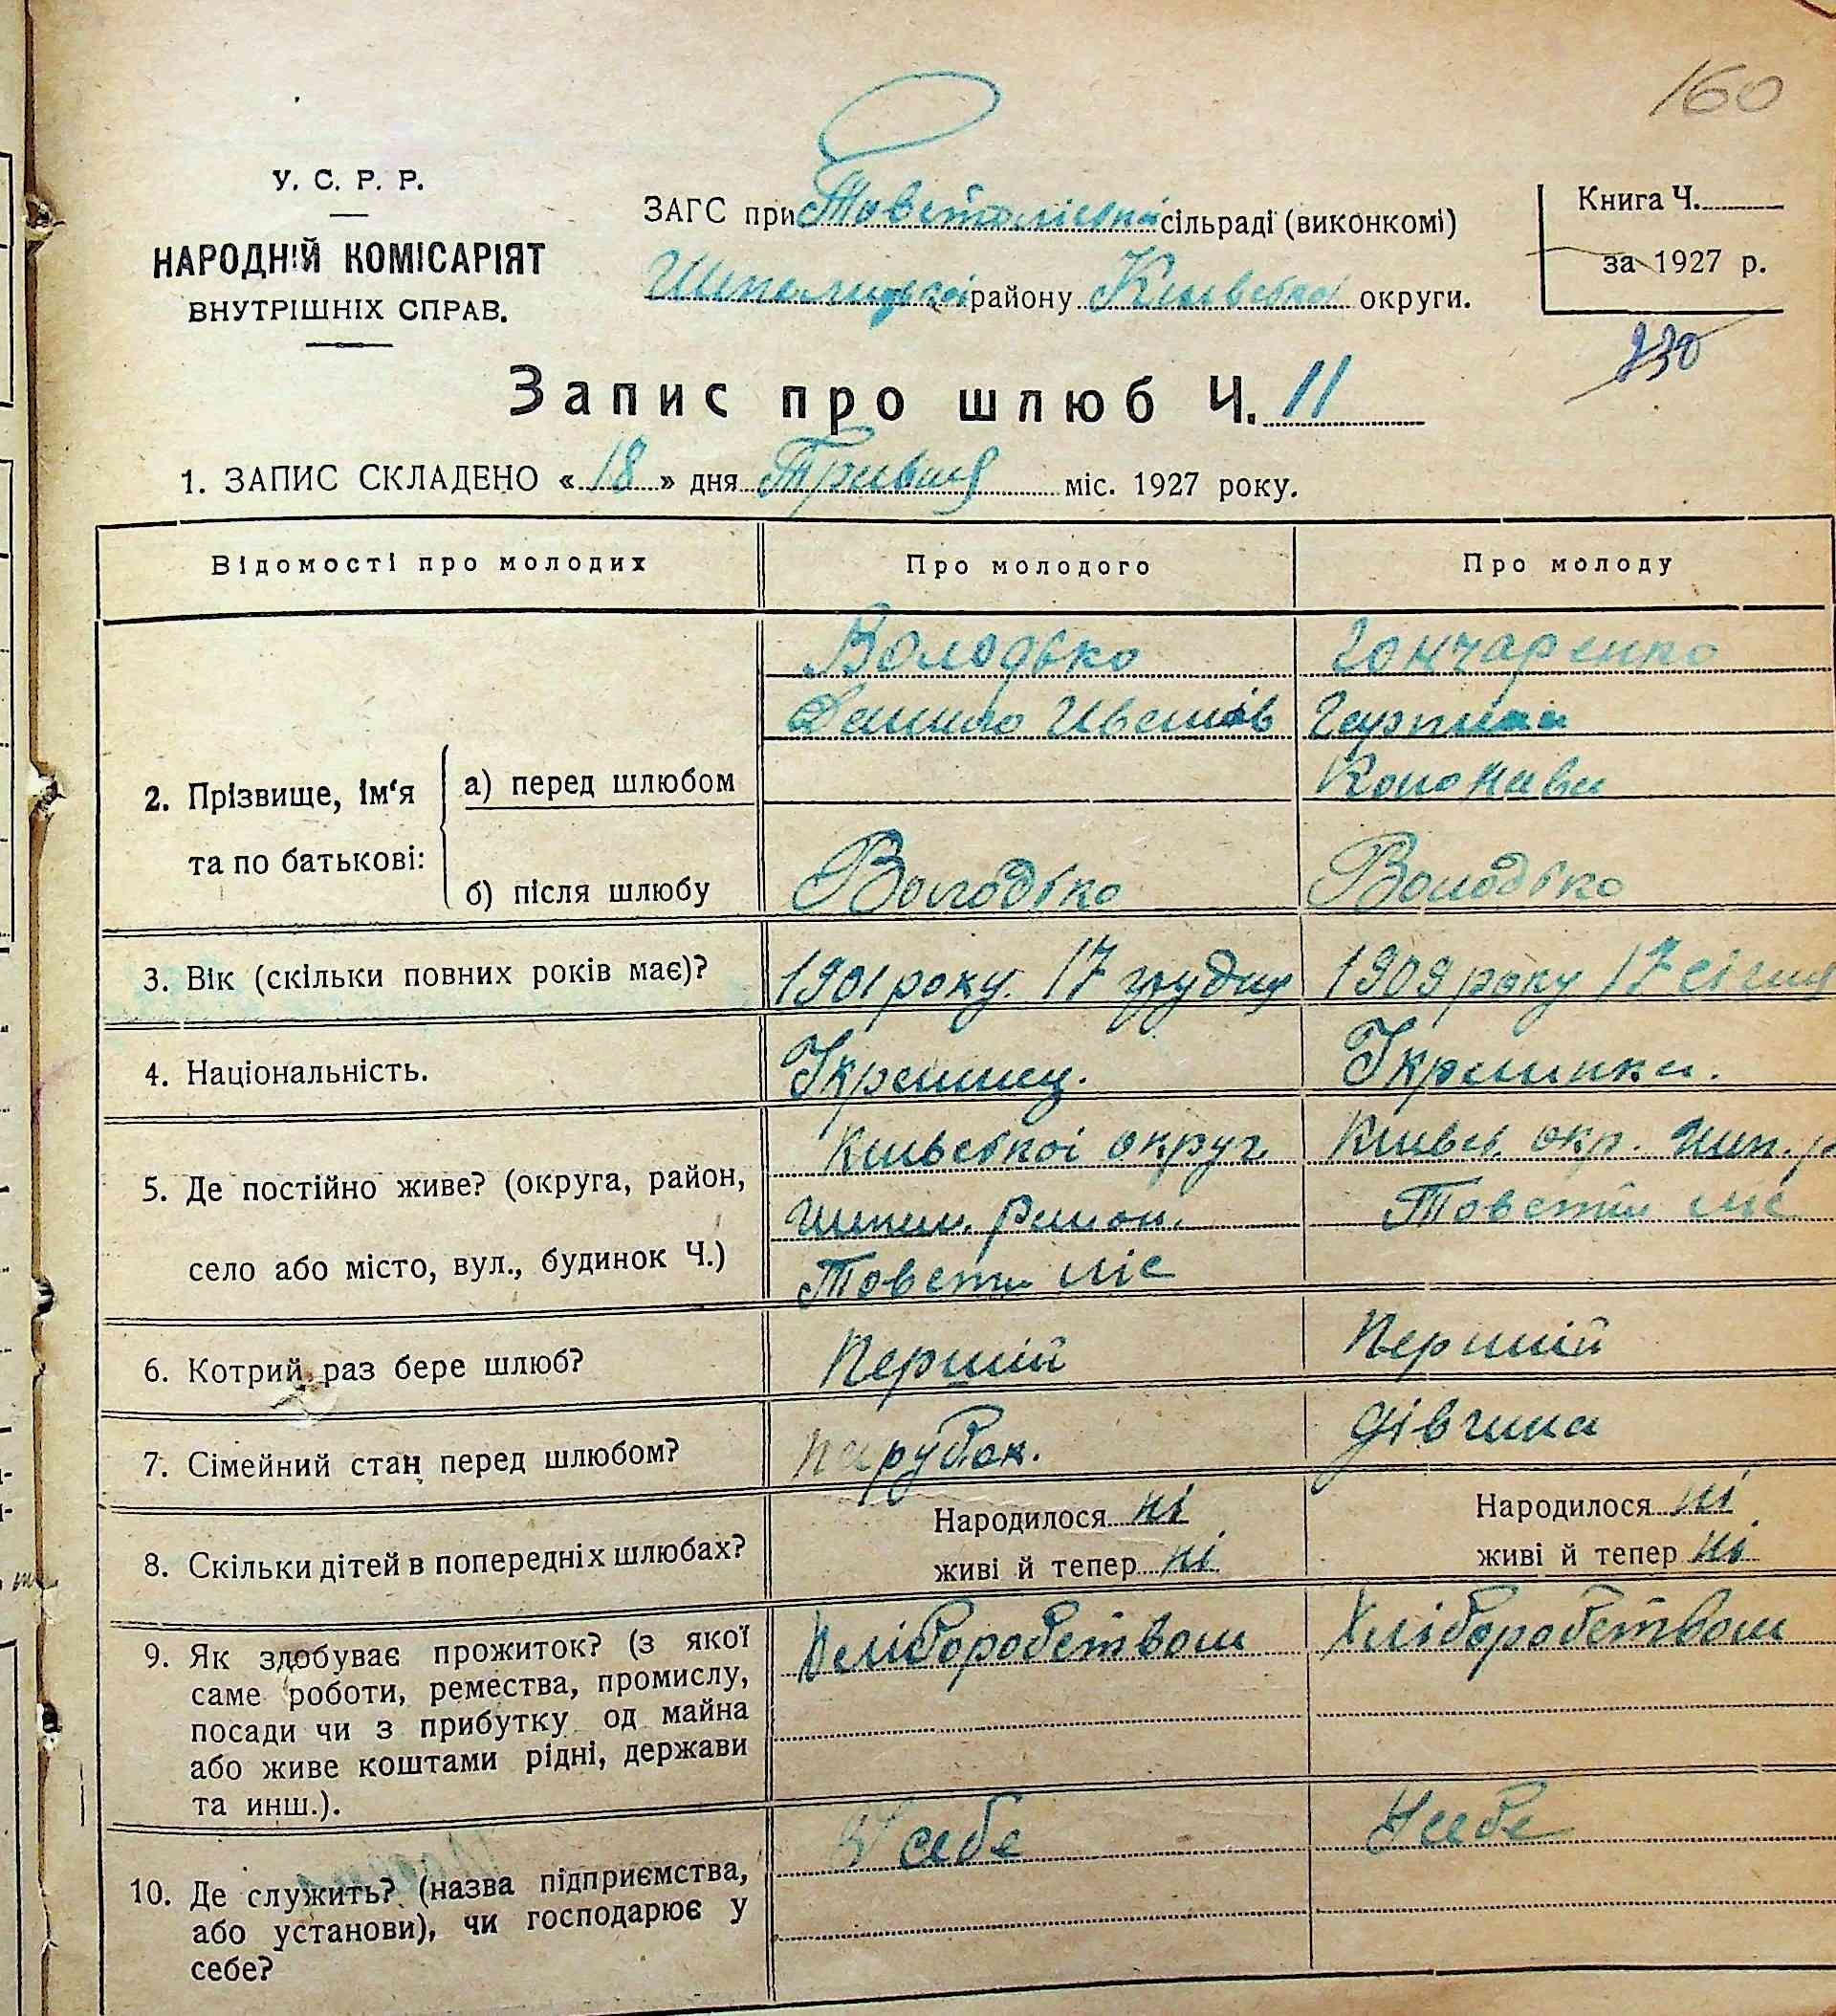 160
У. С. Р. Р.
НАРОДНІЙ КОМІСАРІЯТ
ВНУТРІШНІХ СПРАВ.
ЗАГС при Товстоліськи сільраді (виконкомі)
району Київської округи.
Книга Ч.
за 1927 р.
230
Запис про шлюб Ч. 11
1. ЗАПИС СКЛАДЕНО « 18 » дня Травня міс. 1927 року.
Відомості про молодих
Про молодого
Про молоду
2. Прізвище, ім'я та по батькові:
а) перед шлюбом
Володько
Данило Иванів
Гончаренко
Гарпина
Кононива
б) після шлюбу
Володько
Володько
3. Вік (скільки повних років має)?
1901 року. 17 грудня
1909 року 17 січня
4. Національність.
Українец.
Українка.
5. Де постійно живе? (округа, район,
село або місто, вул., будинок Ч.)
Київської округ.
Шпил. район.
Товсти ліс
Київс. окр. Шпи. р
Товсти ліс
6. Котрий раз бере шлюб?
Перший
Перший
7. Сімейний стан перед шлюбом?
парубок.
дівчина
8. Скільки дітей в попередніх шлюбах?
Народилося ні
живі й тепер ні
Народилося ні
живі й тепер ні
9. Як здобуває прожиток? (з якої
саме роботи, ремества, промислу,
посади чи з прибутку од майна
або живе коштами рідні, держави
та инш.).
Хліборобством
Хліборобством
10. Де служить? (назва підприємства,
або установи), чи господарює у
себе?
У себе
У себе